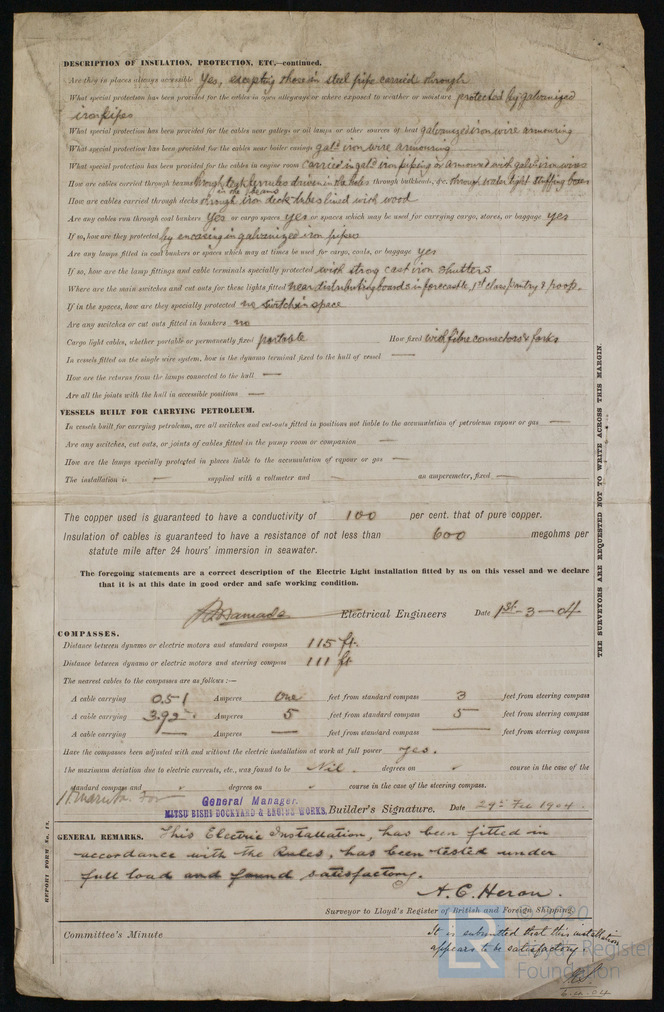 DESCRIPTION OF INSULATION, PROTECTION, ETC.—continued.
Are they in places always accessible Yes, excepting those in steel pipe carried through
What special protection has been provided for the cables in open alleyways or where exposed to weather or moisture protected by galvanized
iron pipes
What special protection has been provided for the cables near galleys or oil lamps or other sources of heat galvanized iron wire armouring
What special protection has been provided for the cables near boiler casings galvd iron wire armouring
What special protection has been provided for the cables in engine room carried in galvd iron piping or armoured with galvd iron wires
How are cables carried through beams through teak ferrules driven in the holes through bulkheads, &c. through water tight stuffing boxes
in the beams
How are cables carried through decks through iron deck tubes lined with wood
Are any cables run through coal bunkers Yes or cargo spaces yes or spaces which may be used for carrying cargo, stores, or baggage yes
If so, how are they protected by encasing in galvanized iron pipes
Are any lamps fitted in coal bunkers or spaces which may at times be used for cargo, coals, or baggage yes
If so, how are the lamp fittings and cable terminals specially protected with strong cast iron shutters
Where are the main switches and cut outs for these lights fitted near distributing boards in forecastle, 1st class pantry & poop.
If in the spaces, how are they specially protected no switch in space
Are any switches or cut outs fitted in bunkers no
Cargo light cables, whether portable or permanently fixed portable How fixed with fibre connectors & forks
In vessels fitted on the single wire system, how is the dynamo terminal fixed to the hull of vessel —
How are the returns from the lamps connected to the hull —
Are all the joints with the hull in accessible positions —
VESSELS BUILT FOR CARRYING PETROLEUM.
In vessels built for carrying petroleum, are all switches and cut-outs fitted in positions not liable to the accumulation of petroleum vapour or gas —
Are any switches, cut outs, or joints of cables fitted in the pump room or companion —
How are the lamps specially protected in places liable to the accumulation of vapour or gas —
The installation is — supplied with a voltmeter and — an amperemeter, fixed —
The copper used is guaranteed to have a conductivity of 100 per cent. that of pure copper.
Insulation of cables is guaranteed to have a resistance of not less than 600 megohms per
statute mile after 24 hours' immersion in seawater.
The foregoing statements are a correct description of the Electric Light installation fitted by us on this vessel and we declare
that it is at this date in good order and safe working condition.
Electrical Engineers Date 1st-3-04
COMPASSES.
Distance between dynamo or electric motors and standard compass 115 ft.
Distance between dynamo or electric motors and steering compass 111 ft
The nearest cables to the compasses are as follows:—
A cable carrying 0.51 Amperes One feet from standard compass 3 feet from steering compass
A cable carrying 3.92 Amperes 5 feet from standard compass 5 feet from steering compass
A cable carrying — Amperes — feet from standard compass — feet from steering compass
Have the compasses been adjusted with and without the electric installation at work at full power yes.
The maximum deviation due to electric currents, etc., was found to be Nil. degrees on " course in the case of the
standard compass and " degrees on " course in the case of the steering compass.
For
General Manager.
MITSU BISHI DOCKYARD & ENGINE WORKS. Builder's Signature. Date 29th Feb 1904.
GENERAL REMARKS. This Electric Installation, has been fitted in
accordance with the Rules, has been tested under
full load and found satisfactory.
A. C. Heron.
Surveyor to Lloyd's Register of British and Foreign Shipping.
Committee's Minute
It is submitted that this installation
appears to be satisfactory
REPORT FORM No. 13.
THE SURVEYORS ARE REQUESTED NOT TO WRITE ACROSS THIS MARGIN.
LR
© 2020
Lloyd's Register
Foundation